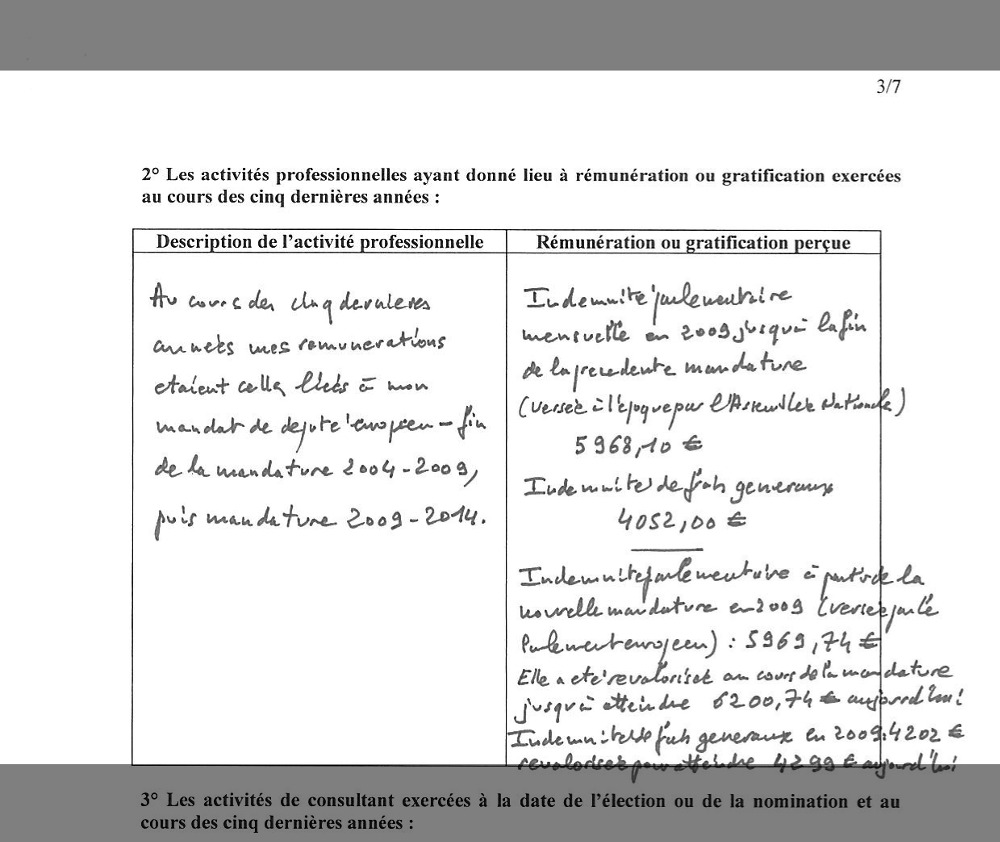 3/7
2° Les activités professionnelles ayant donné lieu à rémunération ou gratification exercées
au cours des cinq dernières années :
Description de l'activité professionnelle
Rémunération ou gratification perçue
Au cours des cinq dernieres
années mes remunerations
etaient celles liées à mon
mandat de deputé européen – fin
de la mandature 2004-2009,
puis mandature 2009-2014.
Indemnité parlementaire
mensuelle en 2009 jusqu'à la fin
de la precedente mandature
(versée à l'époque par l'Assemblée Nationale)
5968,10 €
Indemnité de frais generaux
4052,00 €
Indemnité parlementaire à partir de la
nouvelle mandature en 2009 (versée par le
Parlement européen) : 5969,74 €
Elle a eté revalorisée au cours de la mandature
jusqu'à atteindre 6200,74 € aujourd'hui
Indemnité de frais generaux en 2009: 4202 €
revalorisée pour atteindre 4299 € aujourd'hui
3° Les activités de consultant exercées à la date de l'élection ou de la nomination et au
cours des cinq dernières années :